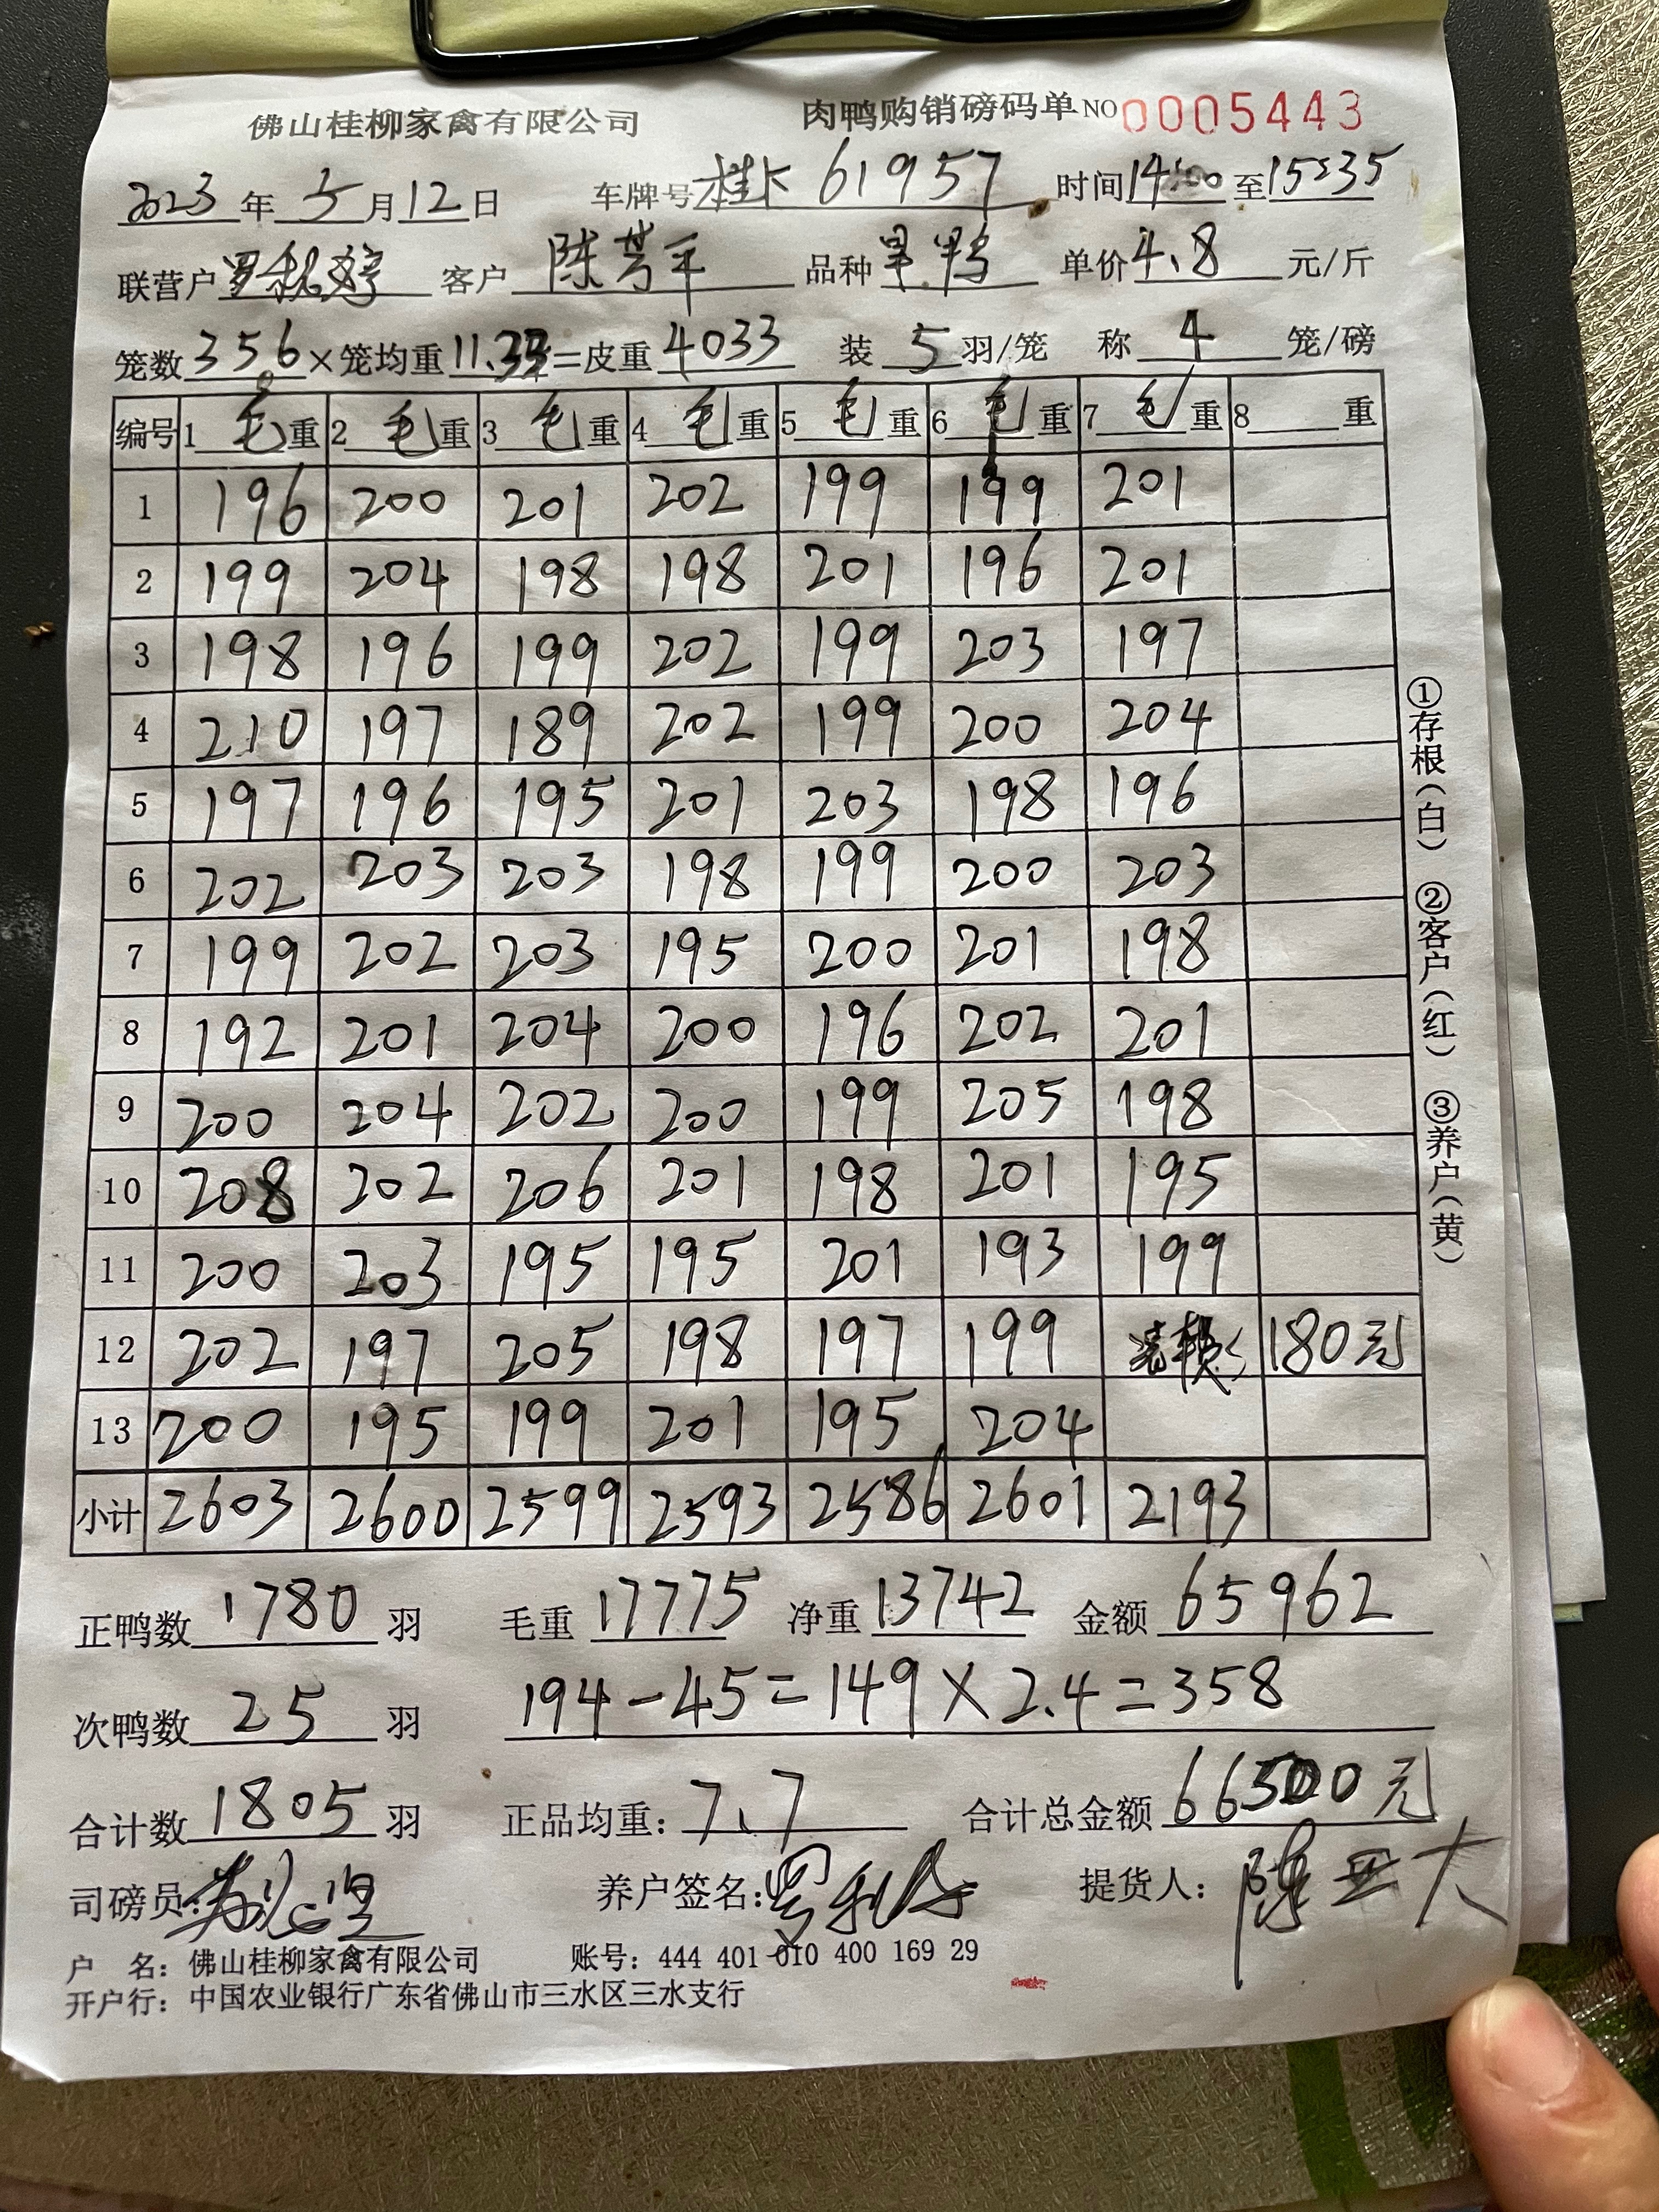 佛山桂柳家禽有限公司 肉鸭购销磅码单 NO 0005443
2023年 5月12日 车牌号 桂K 61957 时间14:00至15:35
联营户 罗 客户 陈 品种 旱鸭 单价4.8 元/斤
笼数356×笼均重11.33=皮重4033 装 5 羽/笼 称 4 笼/磅
编号 1 毛 重 2 毛 重 3 毛 重 4 毛 重 5 毛 重 6 毛 重 7 毛 重 8 重
1 196 200 201 202 199 199 201
2 199 204 198 198 201 196 201
3 198 196 199 202 199 203 197
4 210 197 189 202 199 200 204
5 197 196 195 201 203 198 196
6 202 203 203 198 199 200 203
7 199 202 203 195 200 201 198
8 192 201 204 200 196 202 201
9 200 204 202 200 199 205 198
10 208 202 206 201 198 201 195
11 200 203 195 195 201 193 199
12 202 197 205 198 197 199 180元
13 200 195 199 201 195 204
小计 2603 2600 2599 2593 2586 2601 2193
正鸭数 1780 羽 毛重 17775 净重 13742 金额 65962
次鸭数 25 羽 194-45=149×2.4=358
合计数 1805 羽 正品均重: 7.7 合计总金额 66500元
司磅员: 养户签名: 罗 提货人: 陈
户 名: 佛山桂柳家禽有限公司 账号: 444 401 010 400 169 29
开户行: 中国农业银行广东省佛山市三水区三水支行
①存根(白) ②客户(红) ③养户(黄)